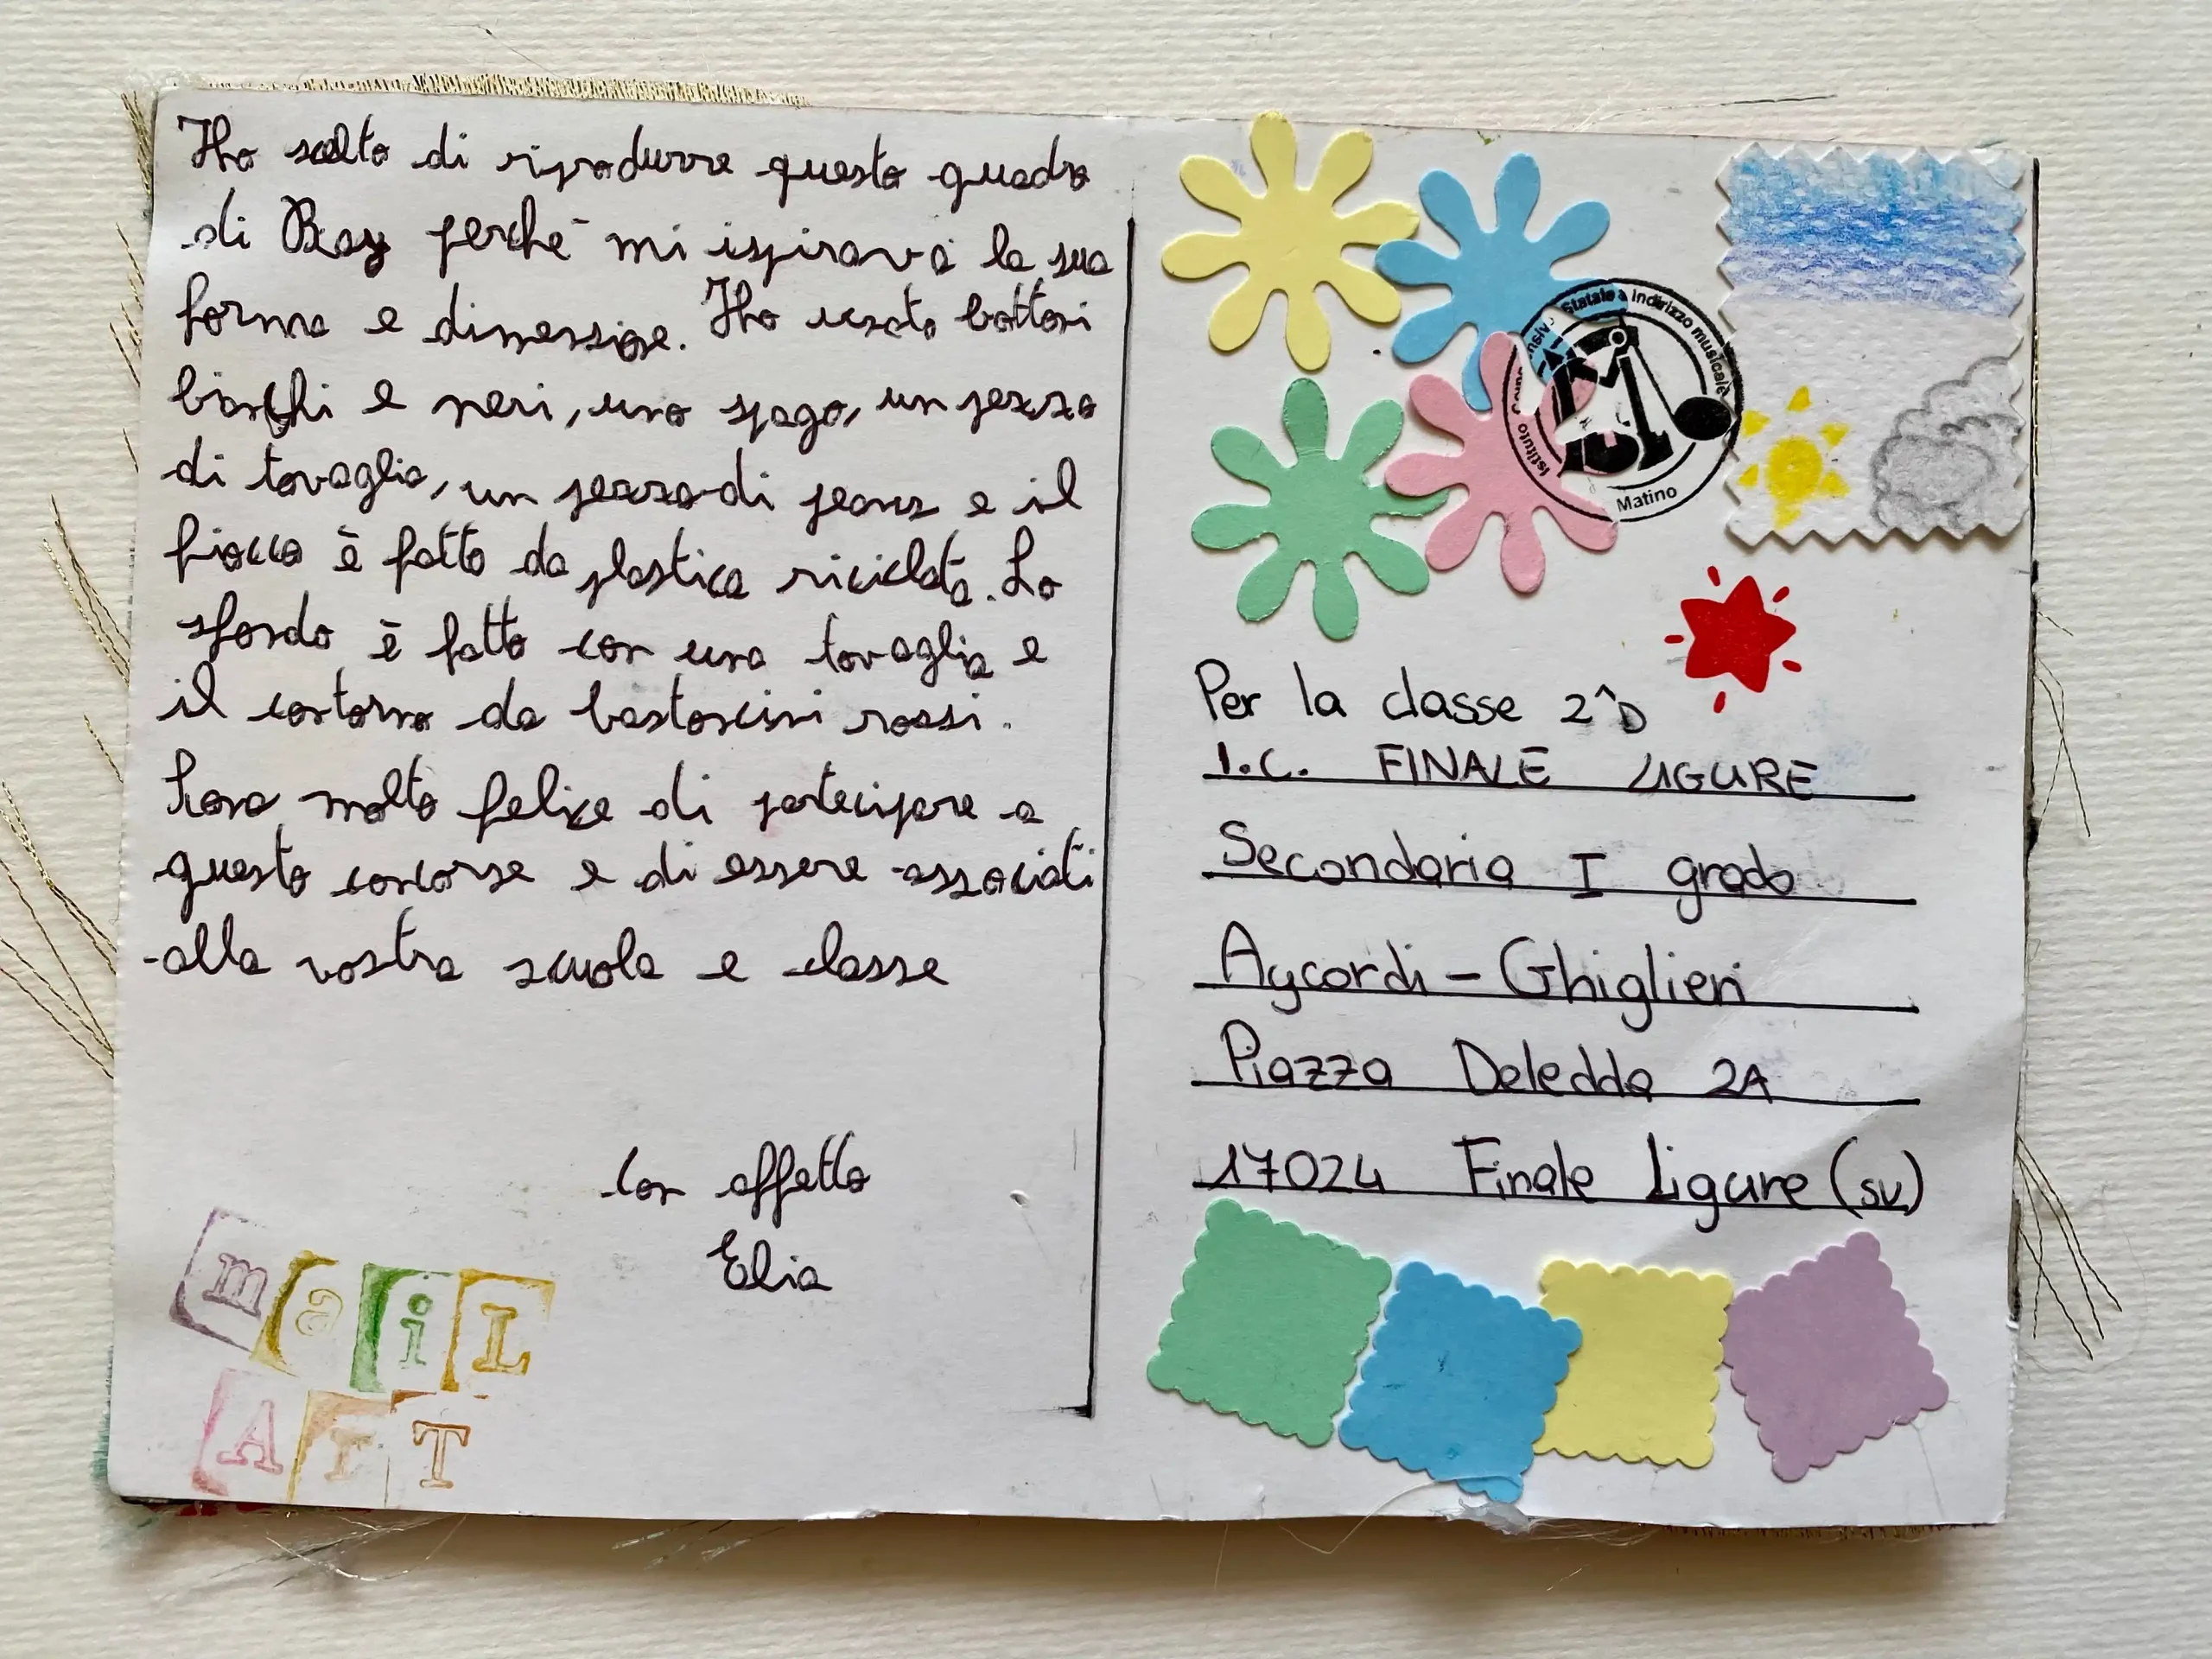 Ho scelto di riprodurre questo quadro
di Bay perchē mi ispirava la sua
forma e dimensione. Ho usato bottoni
bianchi e neri, uno spago, un pezzo
di tovaglia, un pezzo di jeans e il
fiocco è fatto da plastica riciclata. Lo
sfondo è fatto con una tovaglia e
il contorno da bastoncini rossi.
Sono molto felice di partecipare a
questo concorse e di essere associati
alla vostra scuola e classe
Con affetto
Elia
maiL
ArT
Istituto Statale a Indirizzo musicale
Matino
Per la classe 2^D
I.C. FINALE LIGURE
Secondaria I grado
Aycardi - Ghiglieri
Piazza Deledda 2A
17024 Finale Ligure (SV)